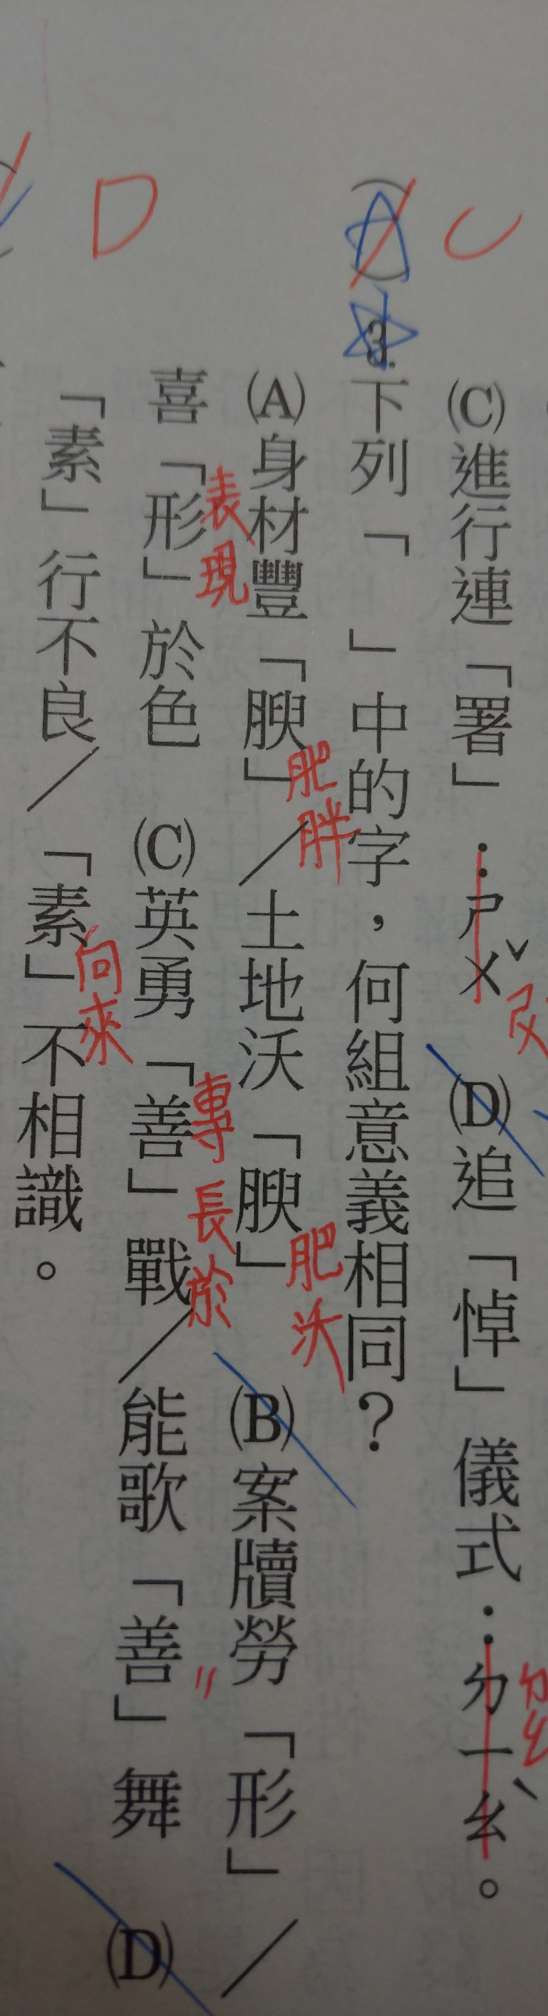 (C)進行連「署」：ㄕㄨˇ
(D)追「悼」儀式：ㄉㄧㄠˋ。
ㄉㄠ
C
(A)
3.下列「　」中的字，何組意義相同？
(A)身材豐「腴」／土地沃「腴」
肥胖
肥沃
(B)案牘勞「形」／
喜「形」於色
表現
(C)英勇「善」戰／能歌「善」舞
專長於
〃
(D)
「素」行不良／「素」不相識。
向來
D